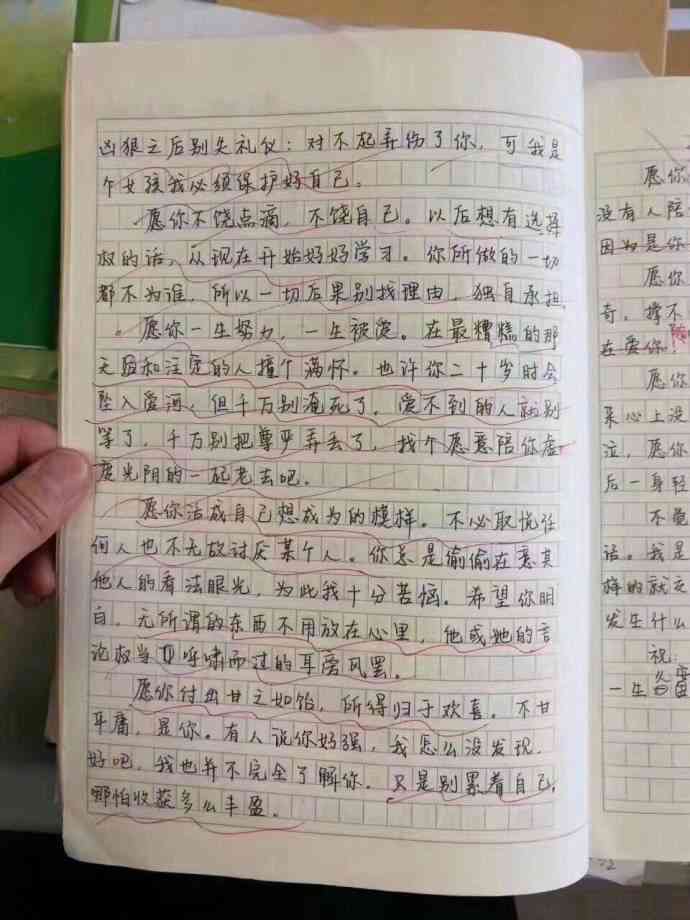 凶狠之后别失礼仪：对不起弄伤了你，可我是
个女孩我必须保护好自己。
愿你不饶点滴，不饶自己。以后想有选择
权的话，从现在开始好好学习。你所做的一切
都不为谁，所以一切后果别找理由，独自承担。
愿你一生努力，一生被爱。在最糟糕的那
天股和注定的人撞个满怀。也许你二十岁时会
坠入爱河，但千万别淹死了，爱不到的人就别
等了，千万别把尊严弄丢了，找个愿意陪你虚
度光阴的一起老去吧。
愿你活成自己想成为的模样。不必取悦任
何人也不无故讨厌某个人。你总是偷偷在意其
他人的看法眼光，为此我十分苦恼。希望你明
白，无所谓的东西不用放在心里，他或她的言
论权当呼啸而过的耳旁风罢。
愿你付出甘之如饴，所得归于欢喜。不甘
平庸，是你。有人说你好强，我怎么没发现，
好吧，我也并不完全了解你。只是别累着自己，
哪怕收获多么丰盈。
愿你
没有人陪
因为是你
愿你
奇，撑不
在爱你
愿你
亲心上没
泣，愿你
后一身轻
不觉
话。我是
梅的就交
发生什么
祝：
一生